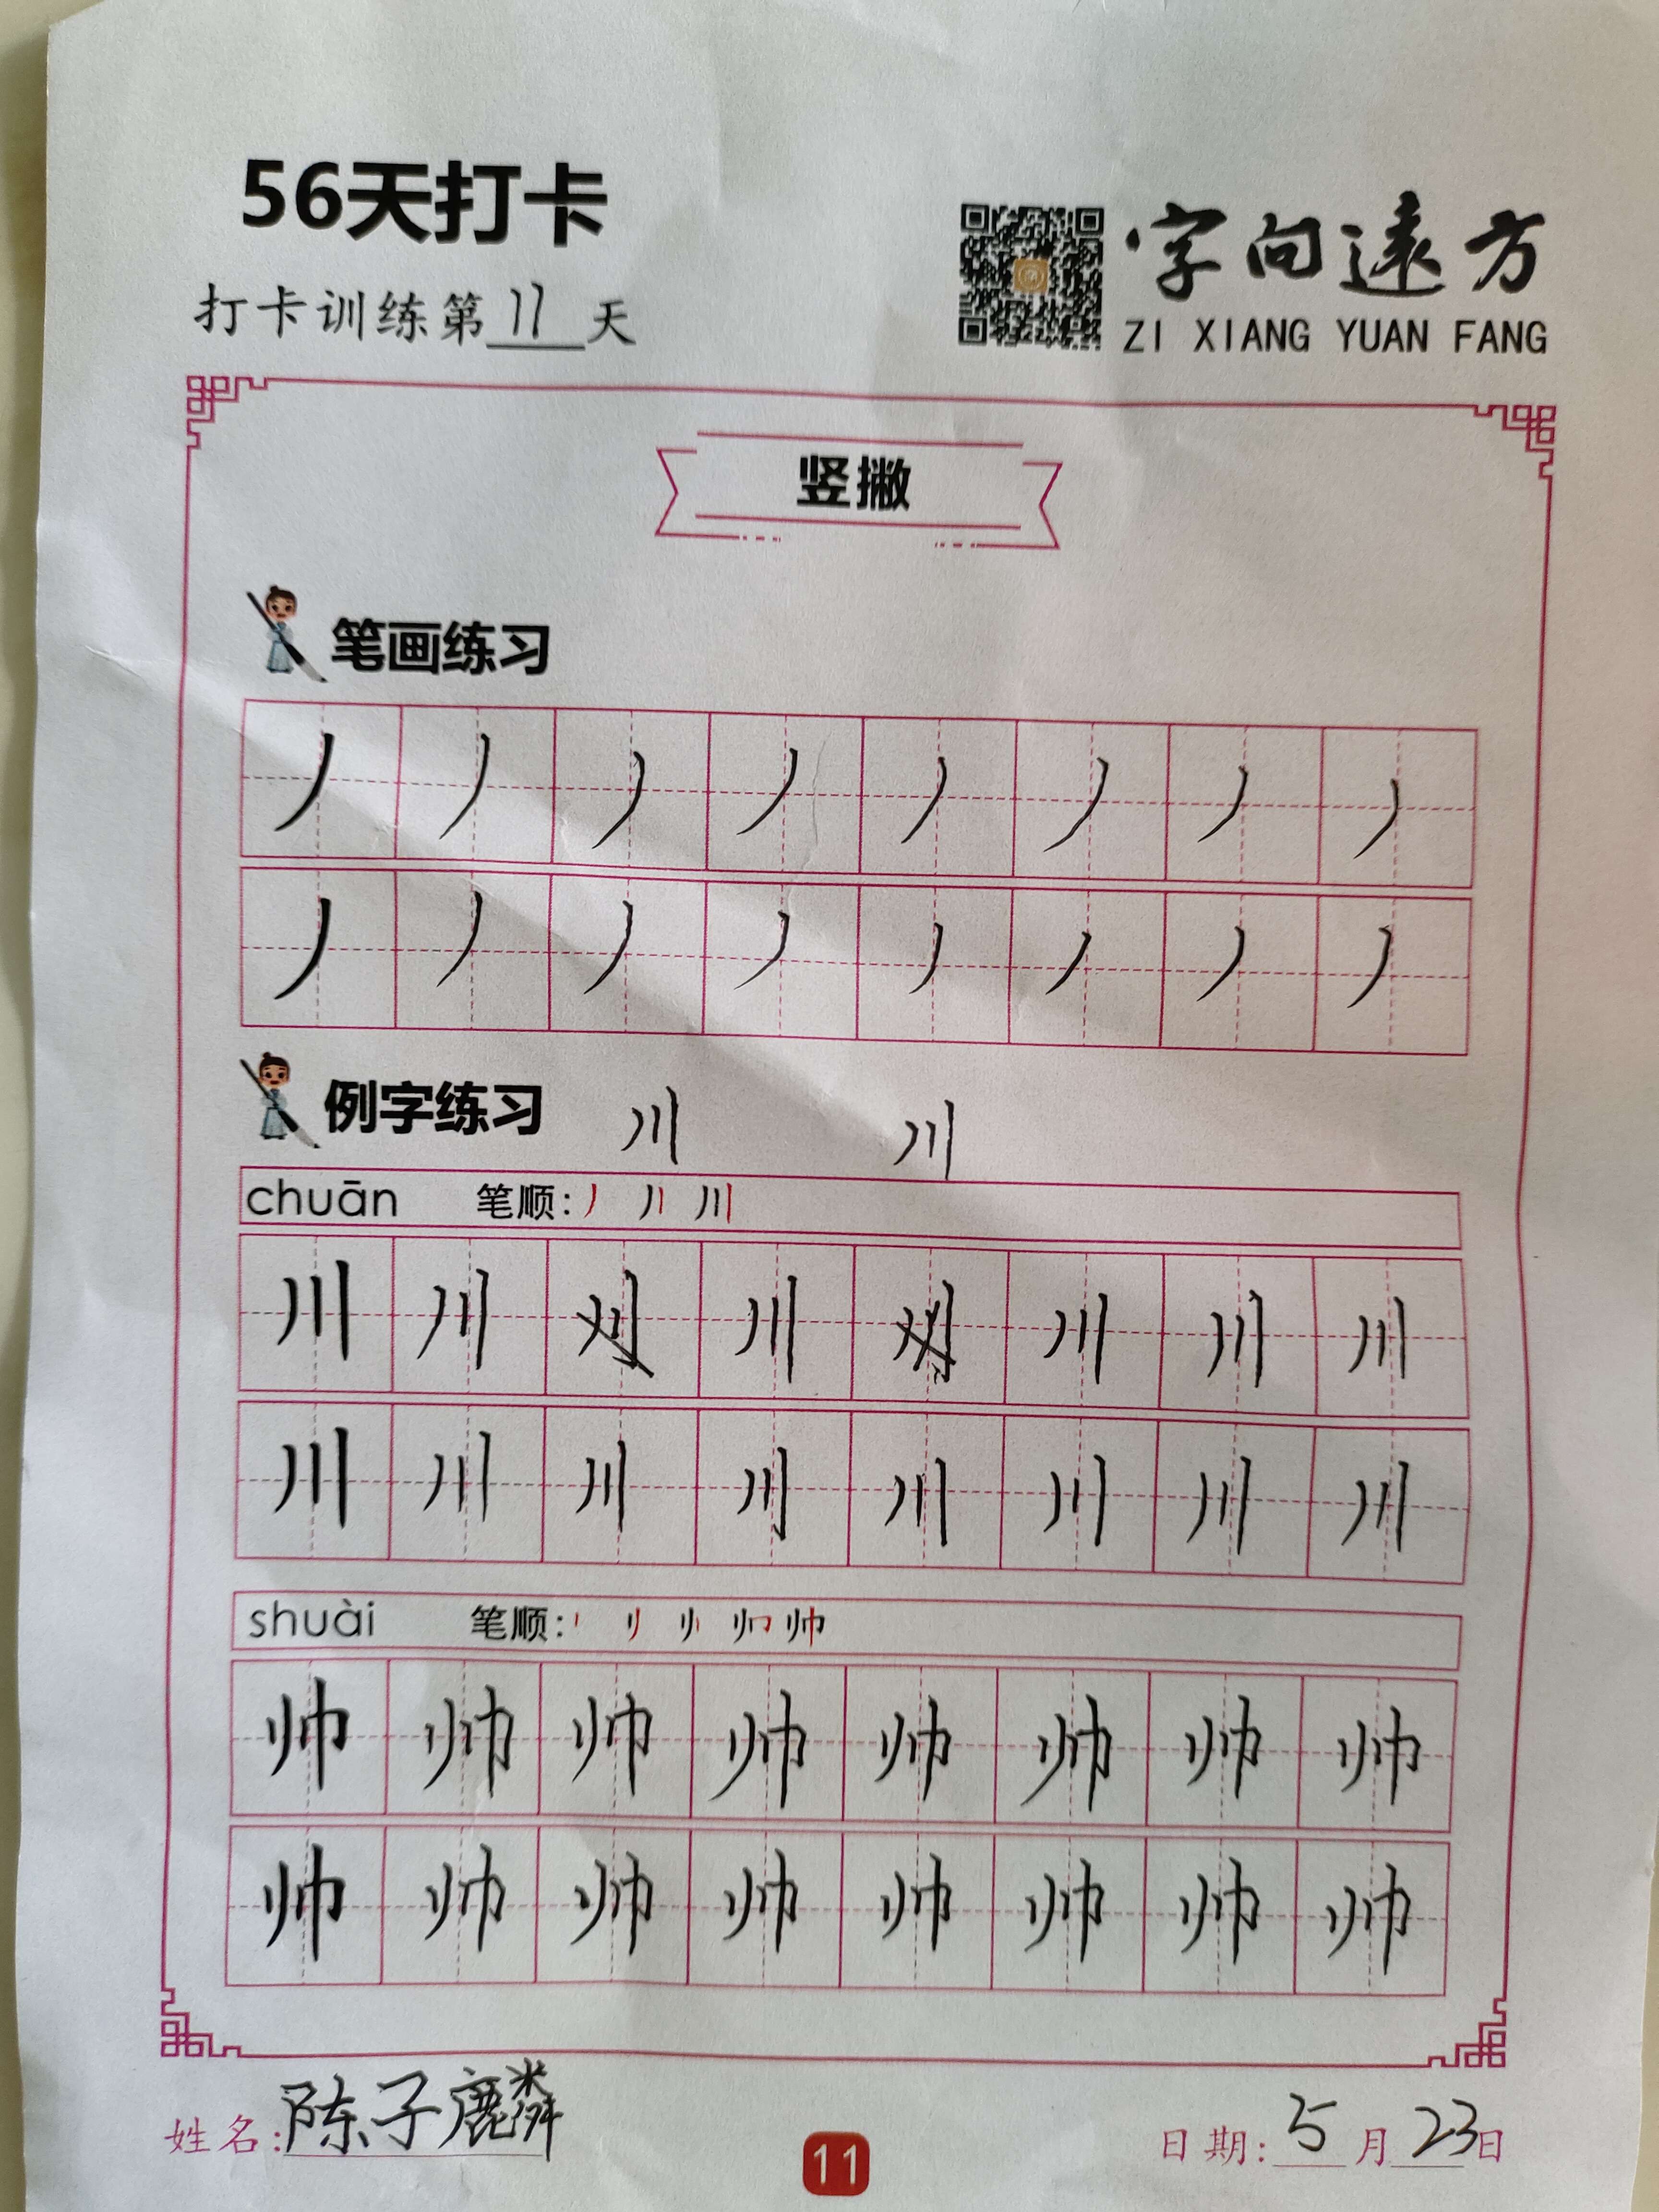 56天打卡
打卡训练第11天
字向遠方
ZI XIANG YUAN FANG
竖撇
笔画练习
丿 丿 丿 丿 丿 丿 丿 丿
丿 丿 丿 丿 丿 丿 丿 丿
例字练习 川 川
chuān 笔顺: 川
川 川 川 川 川 川
川 川 川 川 川 川 川 川
shuài 笔顺: 帅
帅 帅 帅 帅 帅 帅 帅 帅
帅 帅 帅 帅 帅 帅 帅 帅
姓名:陈子麟 日期:5月23日
11